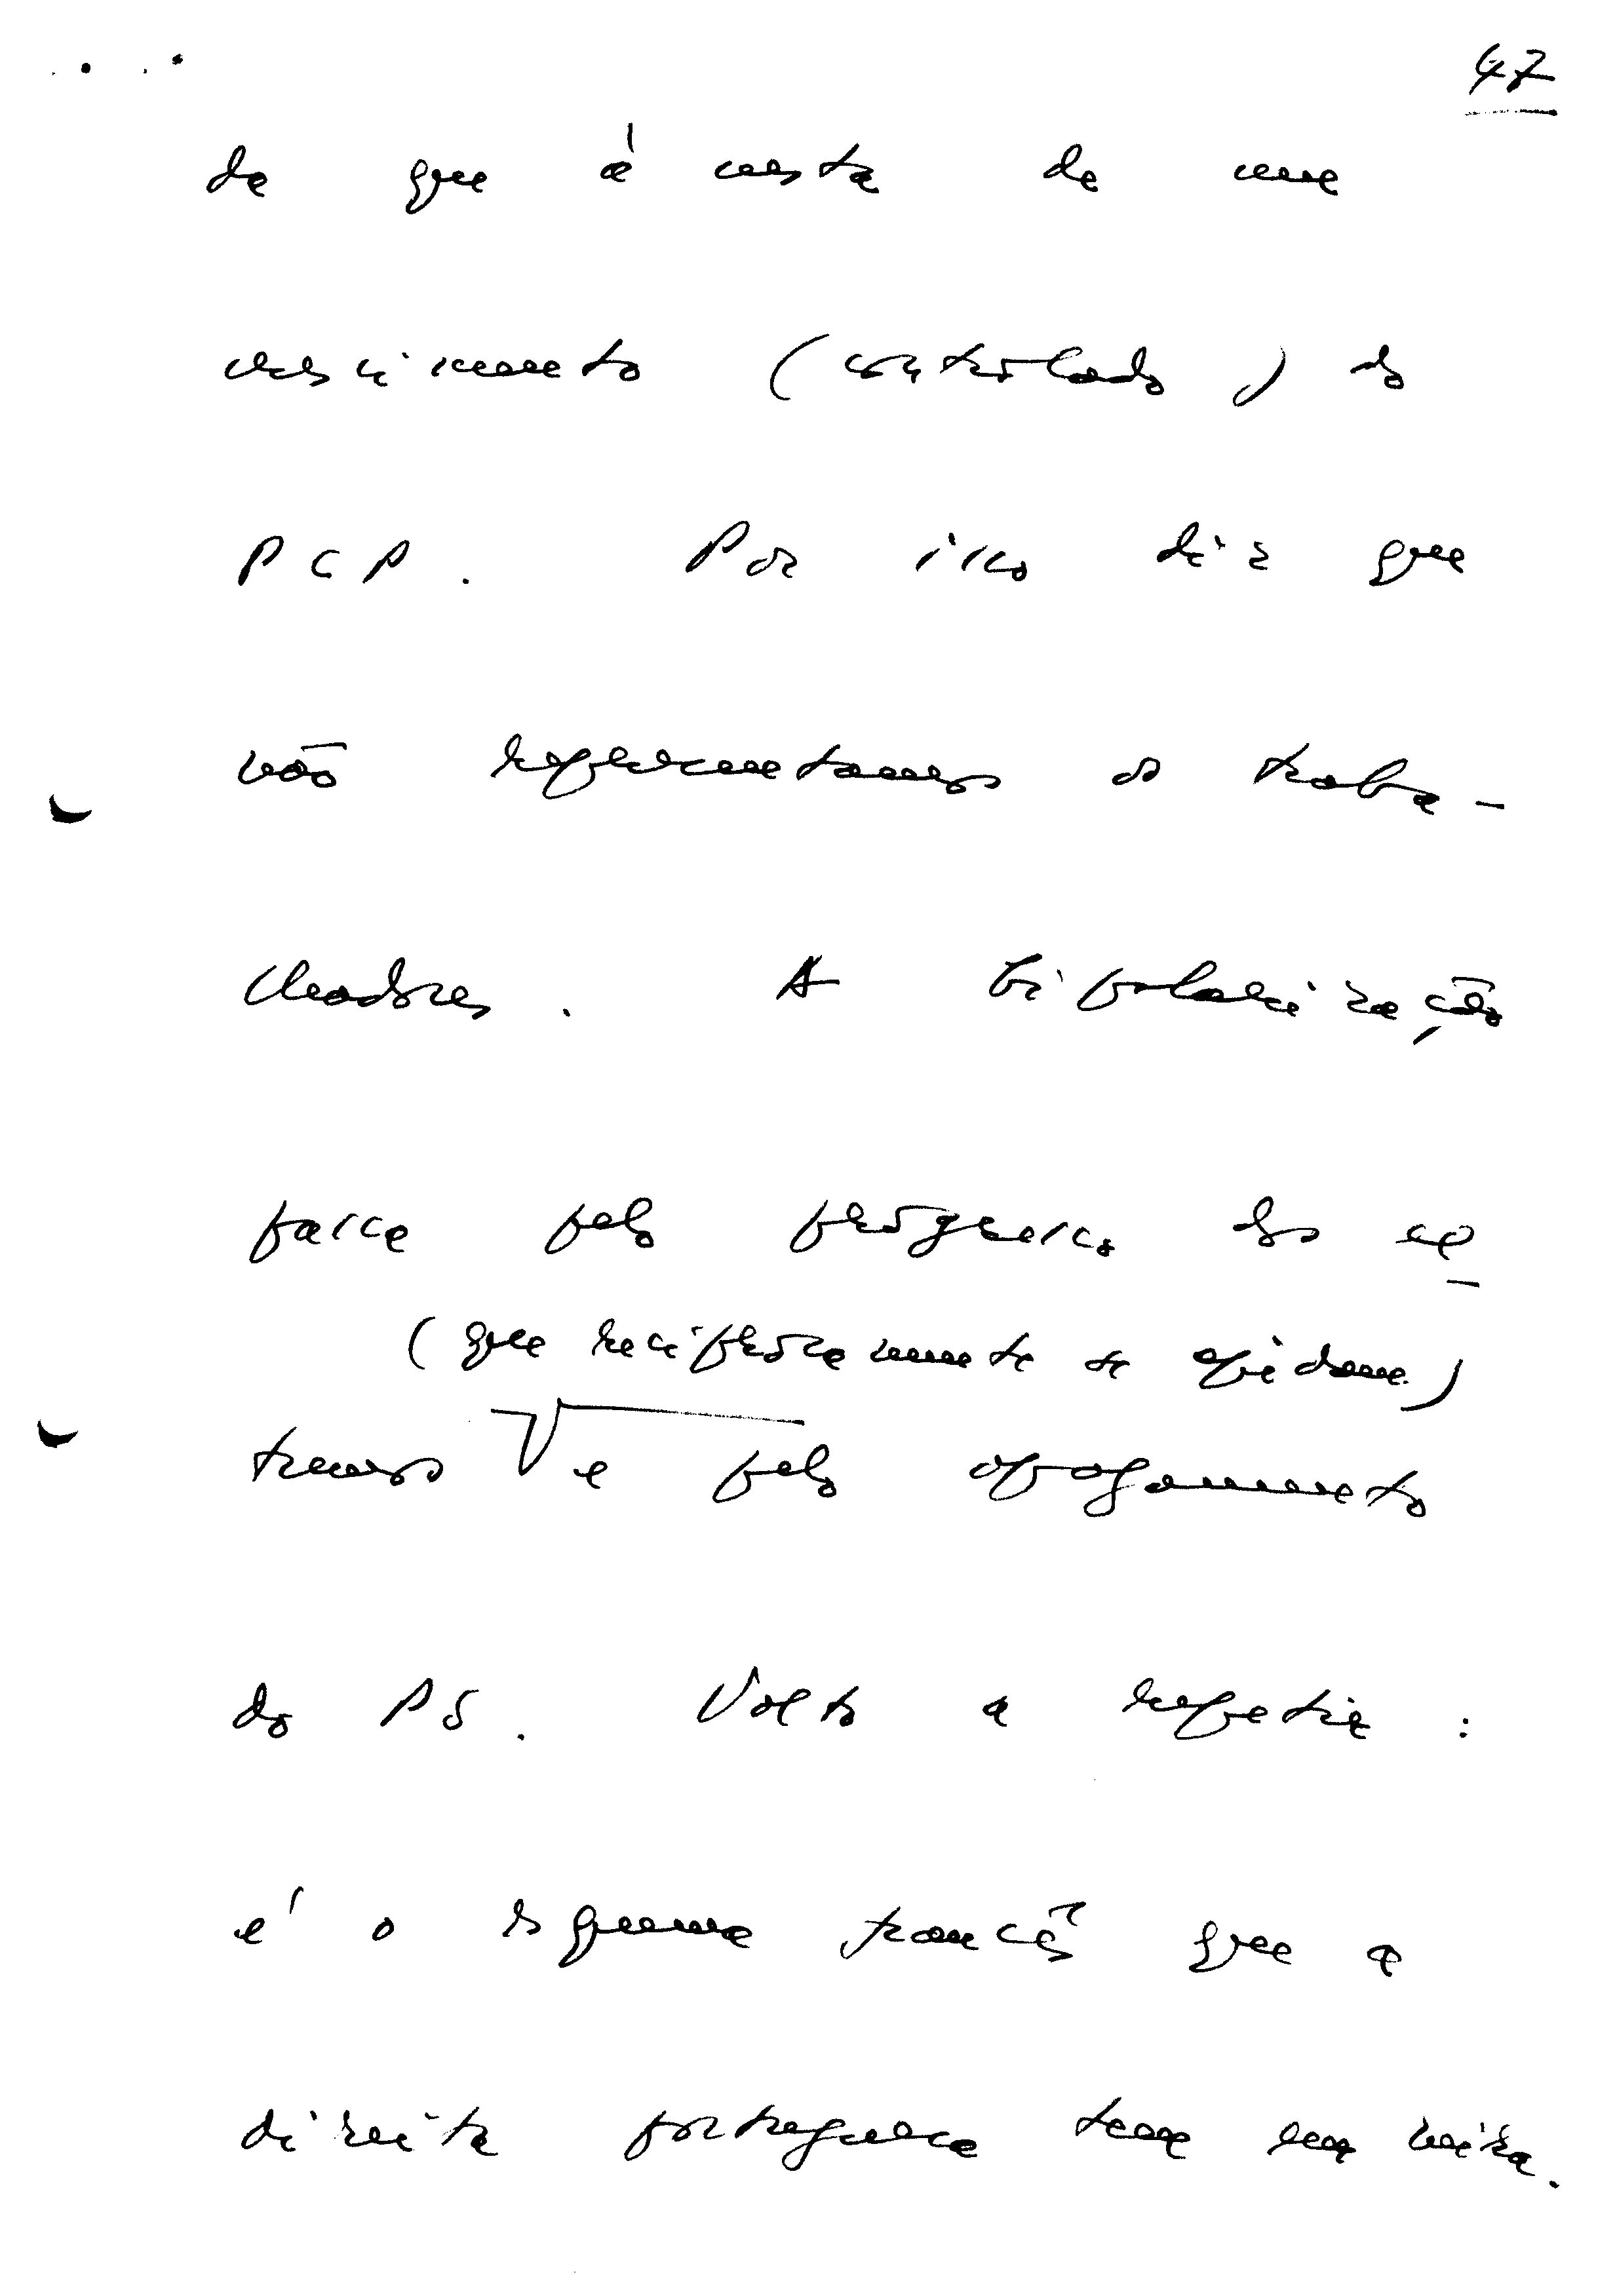 47
da que à custa de um
crescimento (controlado) do
PCP. Por isso diz que
não representamos os traba-
lhadores. A bipolarização
passa pelo progresso dos ex-
(que reciprocamente se ajudam)
tremos e pelo apagamento
do PS. Volto a repetir:
é o esquema francês que a
direita portuguesa tem em mira.